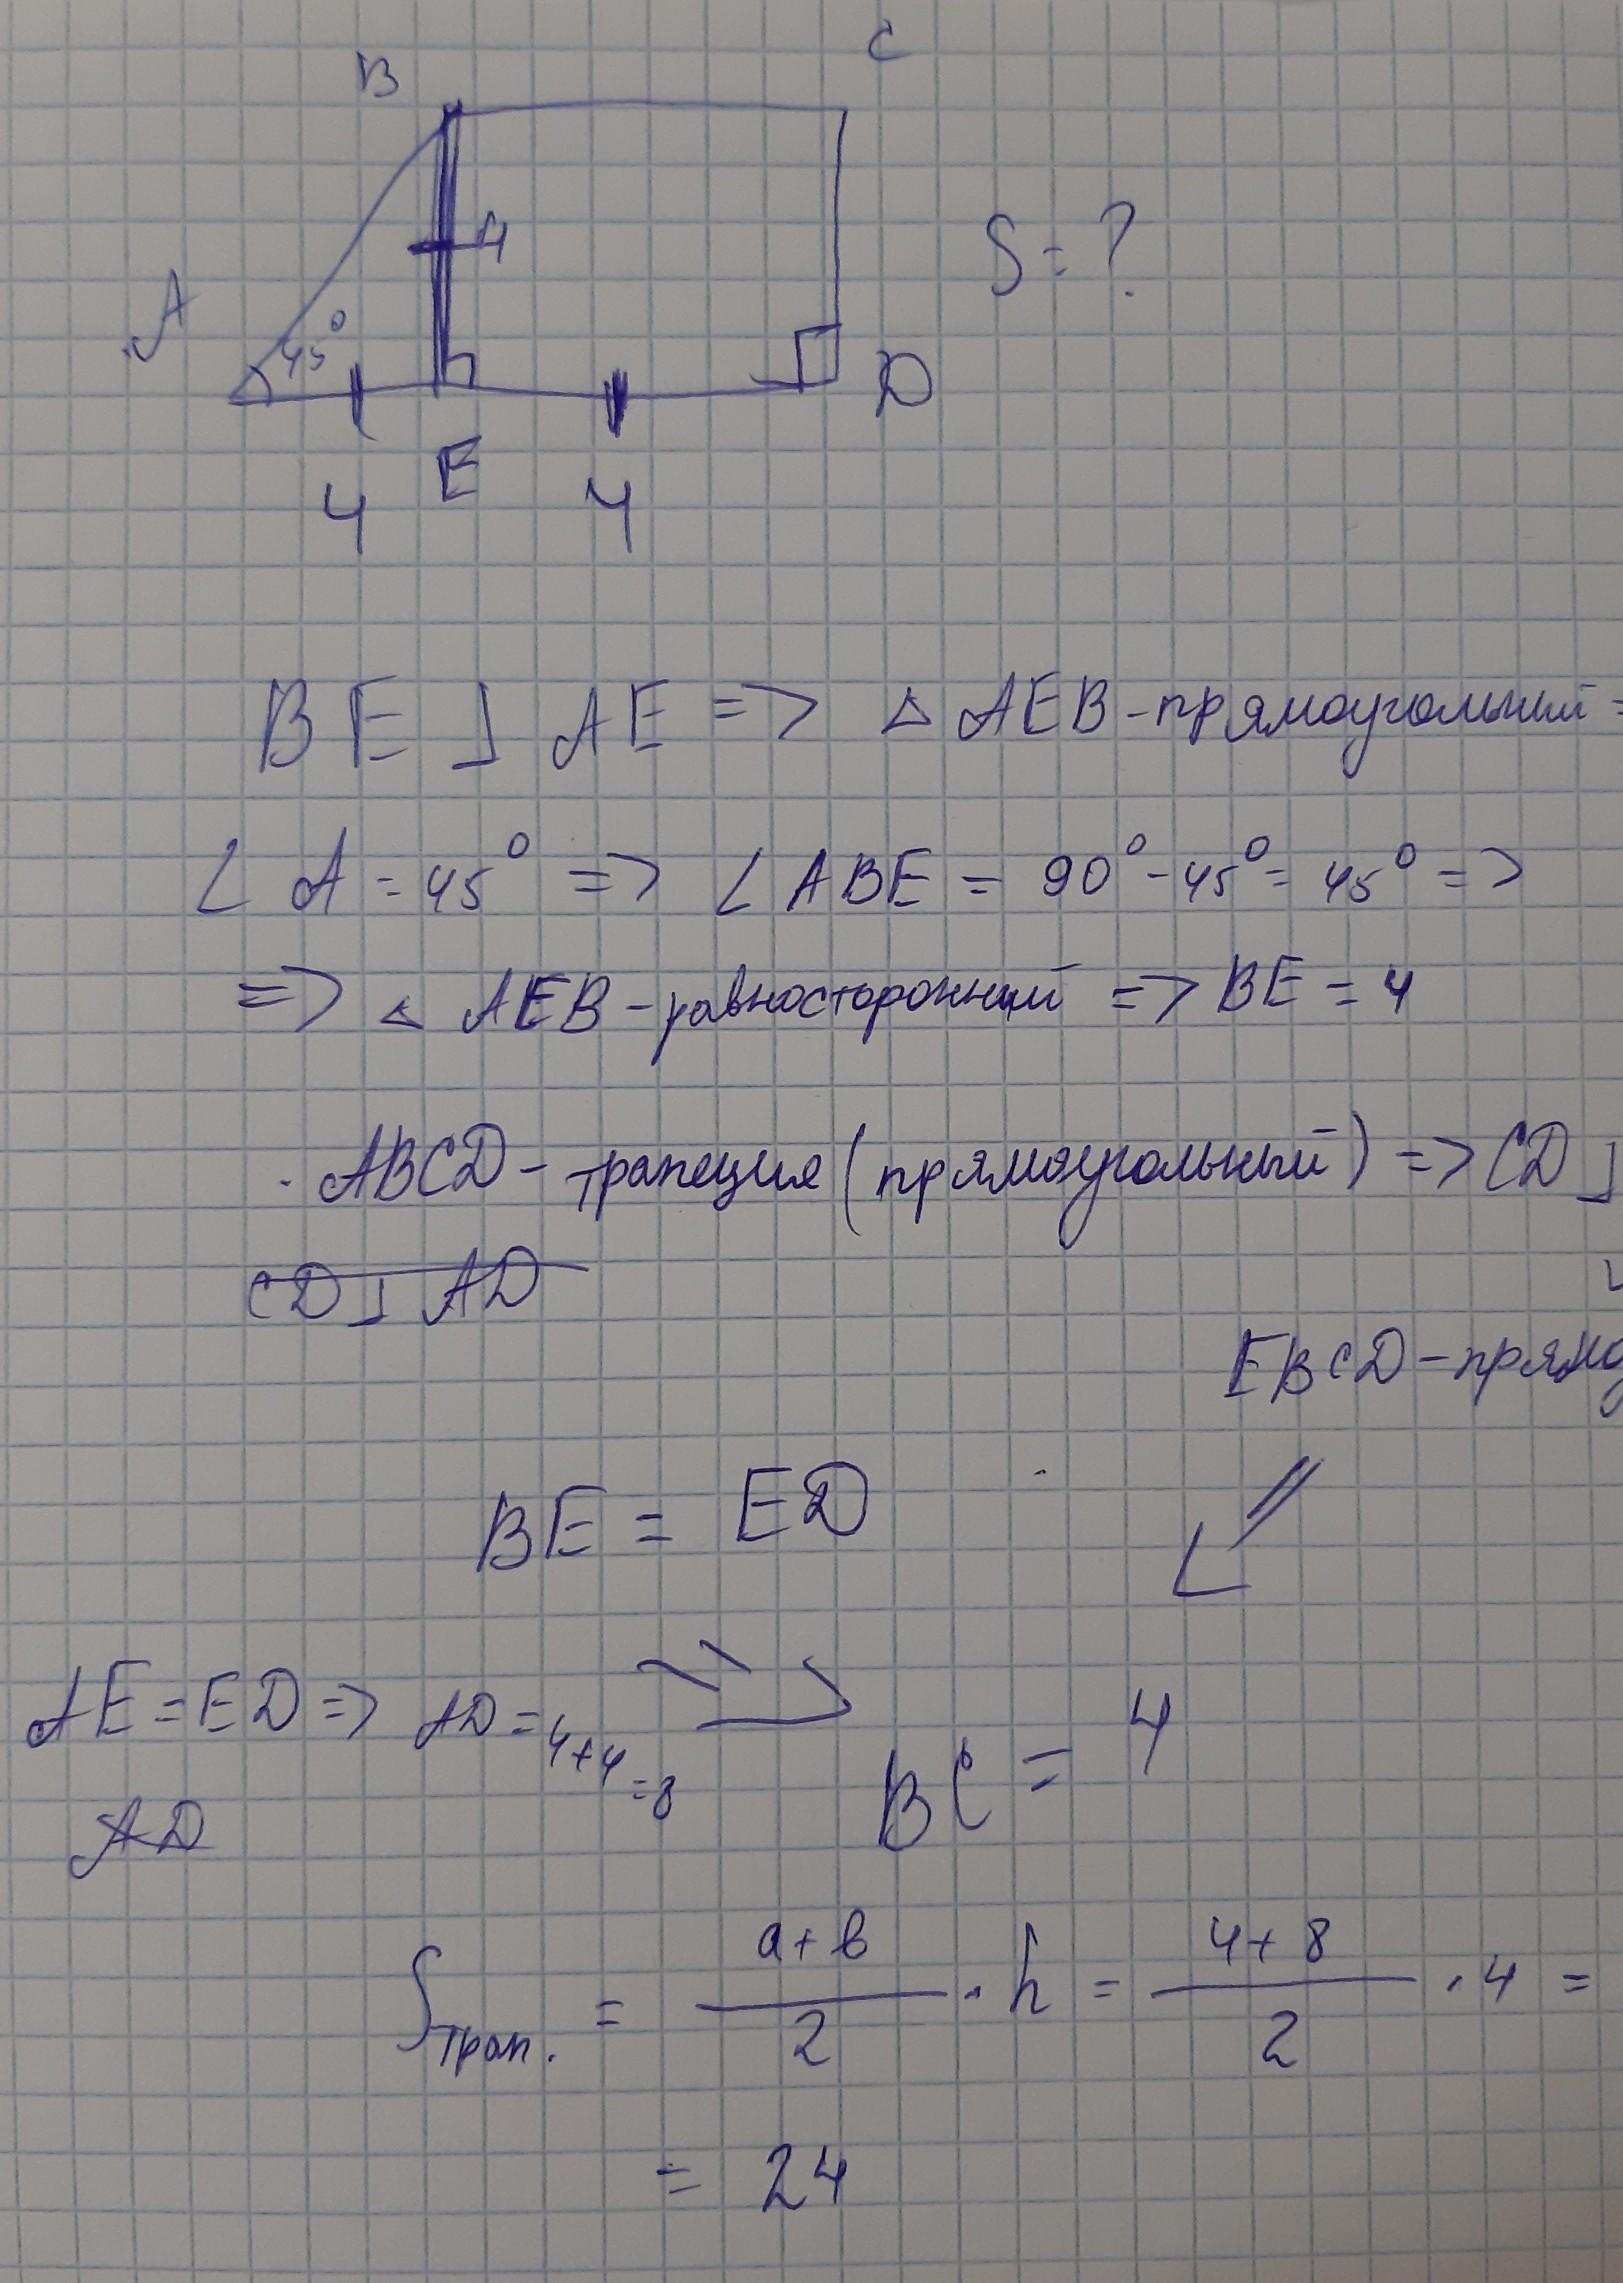 B C
4
S = ?
A 45° D
E
4 4
BE ⊥ AE => △ AEB - прямоугольный =
∠ A = 45° => ∠ ABE = 90° - 45° = 45° =>
=> △ AEB - равносторонний => BE = 4
ABCD - трапеция (прямоугольный) => CD ⊥
CD ⊥ AD
EBCD - прямо
BE = ED
AE = ED => AD = 4+4 = 8 => BC = 4
AD
Sтрап. = a + b / 2 · h = 4 + 8 / 2 · 4 =
= 24